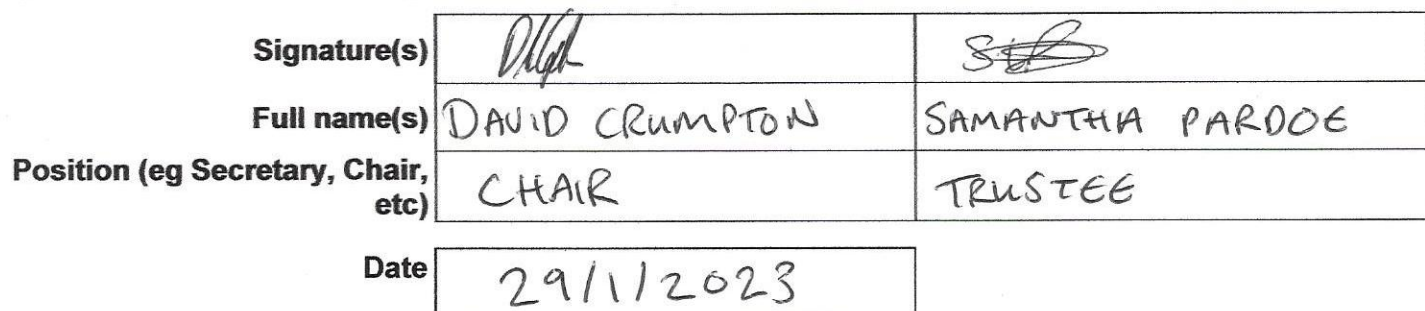 Signature(s)
Full name(s) DAVID CRUMPTON SAMANTHA PARDOE
Position (eg Secretary, Chair,
etc) CHAIR TRUSTEE
Date 29/1/2023